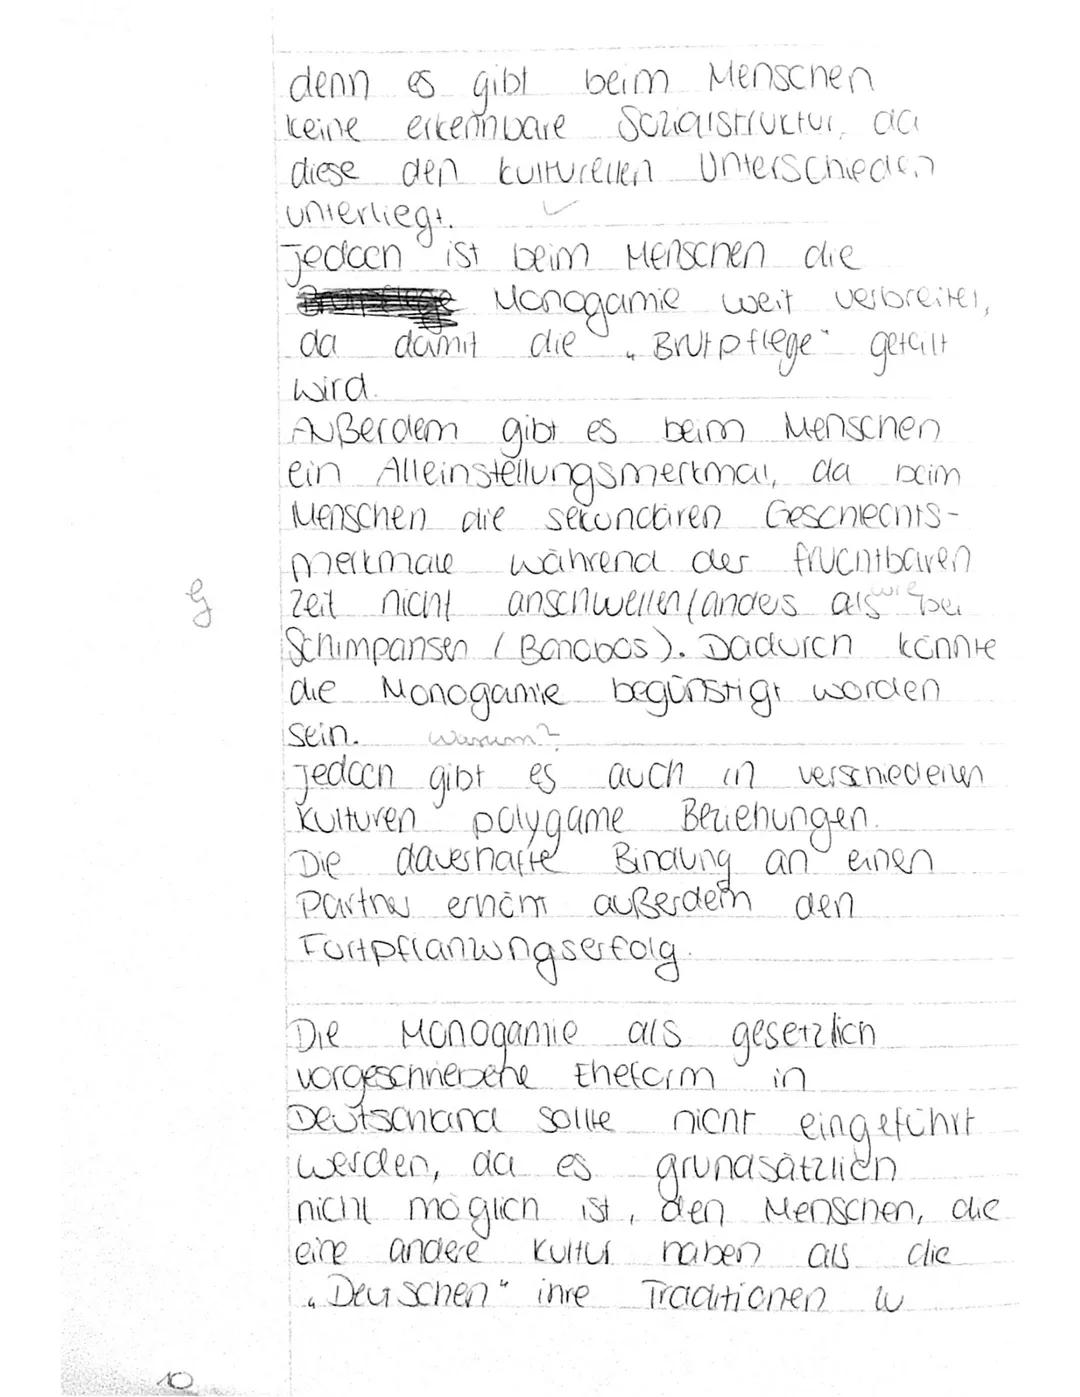 denn es gibt beim Menschen
keine erkennbare Sozialstruktur, da
diese den kulturellen Unterschieden
unterliegt.
Jedoch ist beim Menschen die
Brutpflege Monogamie weit verbreitet,
da damit die „Brutpflege" geteilt
wird.
Außerdem gibt es beim Menschen
ein Alleinstellungsmerkmal, da beim
Menschen die sekundären Geschlechts-
merkmale während der fruchtbaren
Zeit nicht anschwellen (anders als wie bei
Schimpansen / Bonobos). Dadurch könnte
die Monogamie begünstigt worden
sein. Warum?
Jedoch gibt es auch in verschiedenen
Kulturen polygame Beziehungen.
Die dauerhafte Bindung an einen
Partner erhöht außerdem den
Fortpflanzungserfolg.
Die Monogamie als gesetzlich
vorgeschriebene Eheform in
Deutschland sollte nicht eingeführt
werden, da es grundsätzlich
nicht möglich ist, den Menschen, die
eine andere Kultur haben als die
„Deutschen" ihre Traditionen zu
10